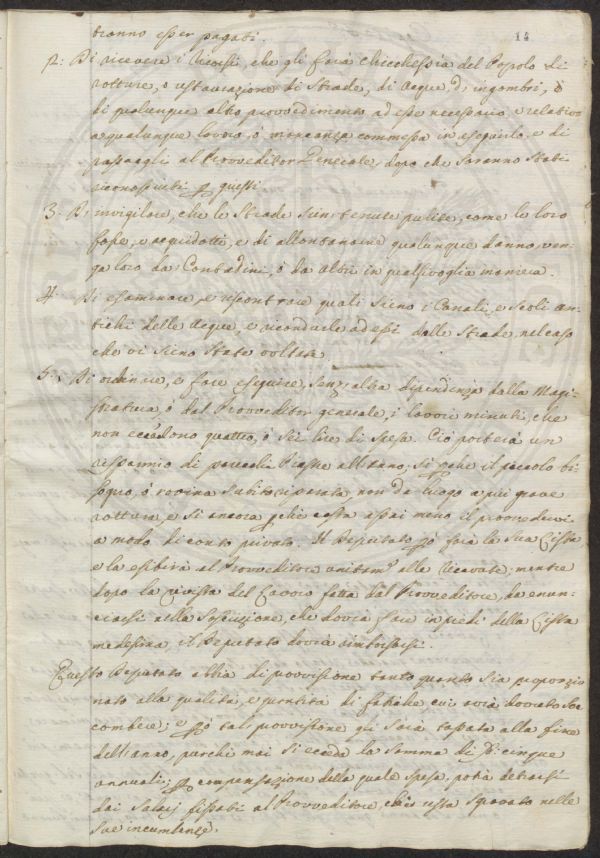 14
tranno esser pagati.
2: Di ricevere i Ricorsi, che gli farà chicchessia del Popolo di
rotture, o ristaurazione di Strade, di Acque, d'ingombri, o
di qualunque altro provvedimento ad esse necessario, e relativo
a qualunque lavoro, o mancanza commessa in eseguirlo, e di
passargli al Provveditor Generale, dopo che saranno stati
riconosciuti questi.
3. D'invigilare, che le Strade sien tenute pulite, come le loro
fosse, e acquidotti, e di allontanare qualunque danno, ven-
ga loro da Contadini, o da altri in qualsivoglia maniera.
4. Di esaminare, e riscontrare quali sieno i Canali, e Scoli an-
tichi delle Acque, e ricondurle ad essi dalle Strade, nel caso
che vi sieno state voltate.
5. Di ordinare, e fare eseguire, senz'altra dipendenza dalla Magi-
stratura, o dal Provveditor generale, i lavori minuti, che
non eccedono quattro, o sei lire di spesa. Ciò porterà un
risparmio di parecchie Piastre all'anno, sì perchè il piccolo bi-
sogno, o rovina subito riparata non dà luogo a più grave
rottura, e sì ancora perchè costa assai meno il provvedervi
a modo di conto privato. Il Deputato però farà la sua Lista
e la esibirà al Provveditore unitam.e alle Ricevute; mentre
dopo la rivista del Lavoro fatta dal Provveditore, da enun-
ciarsi nella soscrizione, che dovrà fare in piedi della Lista
medesima, il Deputato dovrà rimborsarsi.
Questo Deputato abbia di provvisione tanto quanto sia proporzio
nato alla qualità, e quantità di fatiche cui avrà dovuto soc
combere; e però tal provvisione gli sarà tassata alla fine
dell'anno, purchè mai si ecceda la somma di cinque
annuali; per compensazione della quale spesa, potrà detrarsi
dai Salarj fissati al Provveditore, che resta sgravato nelle
sue incumbenze.